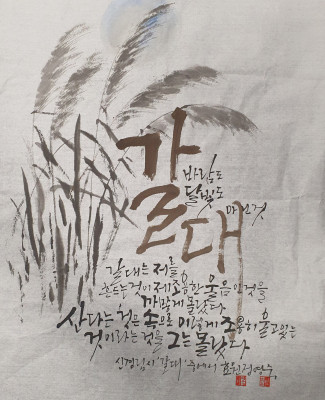 갈대
바람도
달빛도
아닌것
갈대는 저를
흔드는것이 제조용한 울음인것을
까맣게 몰랐다
산다는 것은 속으로 이렇게 조용히 울고있는
것이라는 것을 그는 몰랐다
신경림시 '갈대' 중에서